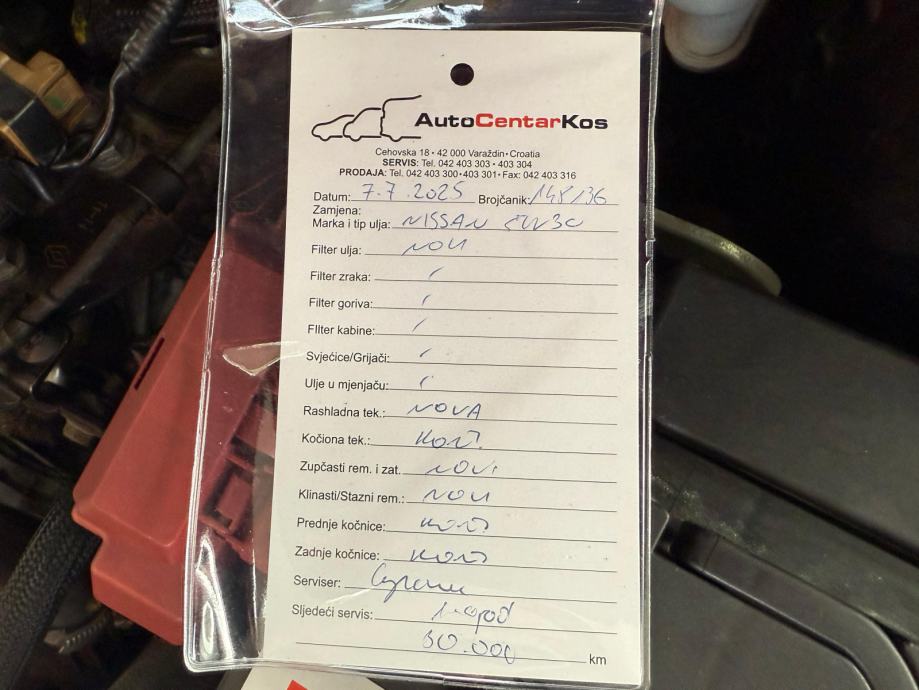 AutoCentarKos
Cehovska 18 • 42 000 Varaždin • Croatia
SERVIS: Tel. 042 403 303 • 403 304
PRODAJA: Tel. 042 403 300 • 403 301 • Fax: 042 403 316
Datum: 7.7.2025 Brojčanik: 148136
Zamjena:
Marka i tip ulja: NISSAN 5W30
Filter ulja: NOVI
Filter zraka: /
Filter goriva: /
FIlter kabine: /
Svjećice/Grijači: /
Ulje u mjenjaču: /
Rashladna tek.: NOVA
Kočiona tek.:
Zupčasti rem. i zat. NOVI
Klinasti/Stazni rem.: NOVI
Prednje kočnice:
Zadnje kočnice:
Serviser:
Sljedeći servis: 1. god
30.000 km